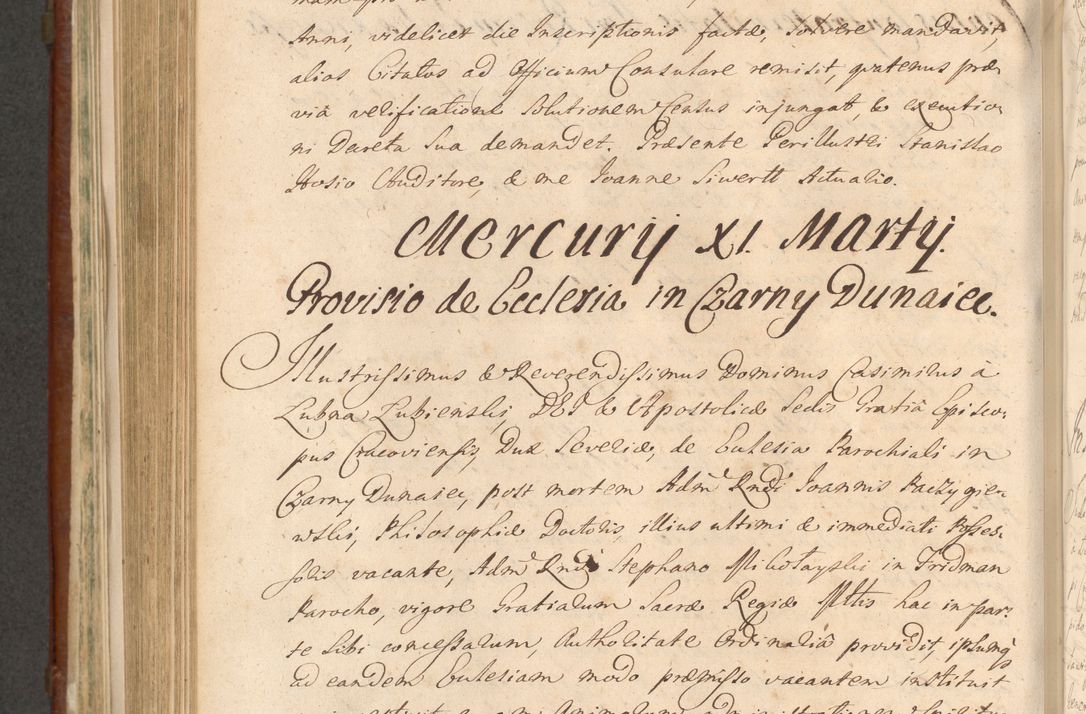 Anni, videlicet die Inscriptionis factæ, solvere mandavit,
alias Citatus ad Officium Consulare remisit, quatenus præ
viâ verificatione solutionem Census injungat, & executio
ni Decreta sua demandet. Præsente Perillustri Stanislao
Hosio Auditore, & me Joanne Siwertt Actuario.
Mercurij XI. Martij.
Provisio de Ecclesia in Czarny Dunaiec.
Illustrissimus & Reverendissimus Dominus Casimirus à
Lubna Lubienski, DEI & Apostolicæ Sedis Gratiâ Episco-
pus Cracoviensis, Dux Severiæ, de Ecclesia Parochiali in
Czarny Dunaiec, post mortem Adm. Rndi Joannis Paczygien
wski, Philosophiæ Doctoris, illius ultimi & immediati Posses-
soris vacante, Adm. Rndo Stephano Mikołayski in Fridman
Parocho, vigore Gratiarum Sacræ Regiæ Mttis hac in par-
te sibi concessarum, Authoritate Ordinariâ providit, ipsumq
ad eandem Ecclesiam modo præmisso vacantem instituit